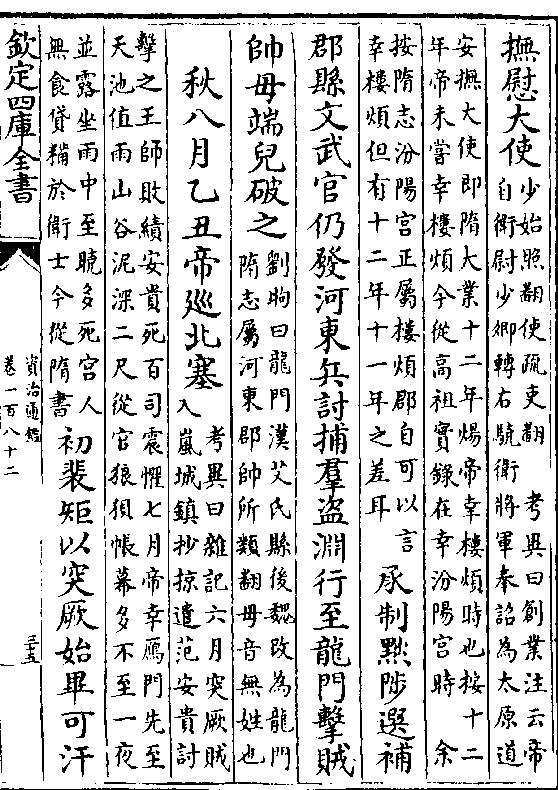 撫慰大使
少始照翻使疏吏翻 考異曰創業注云帝
自衛尉少卿轉右驍衛將軍奉詔為太原道
安撫大使即隋大業十二年煬帝幸樓煩時也按十二
年帝未嘗幸樓煩今從高祖實錄在幸汾陽宮時 余
按隋志汾陽宮正屬樓煩郡自可以言
幸樓煩但有十二年十一年之差耳
承制黜陟選補
郡縣文武官仍發河東兵討捕羣盜淵行至龍門擊賊
帥毋端兒破之
劉昫曰龍門漢艾氏縣後魏改為龍門
隋志屬河東郡帥所類翻毋音無姓也
秋八月乙丑帝巡北塞
考異曰雜記六月突厥賊
入嵐城鎮抄掠遣范安貴討
擊之王師敗績安貴死百司震懼七月帝幸鴈門先至
天池值雨山谷泥深二尺從官狼狽帳幕多不至一夜
並露坐雨中至曉多死宮人
無食貸糒於衛士今從隋書
初裴矩以突厥始畢可汗
欽定四庫全書
資治通鑑
卷一百八十二
三十五